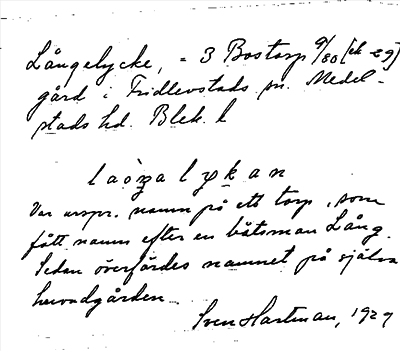 Långelycke, = 3 Bostorp 9/80 [ek eg]
gård i Fridlevstads sn. Medel-
stads hd. Blek. l
Var urspr. namn på ett torp, som
fått namn efter en båtsman Lång.
Sedan överfördes namnet på själva
huvudgården.
Sven Hartman, 1929